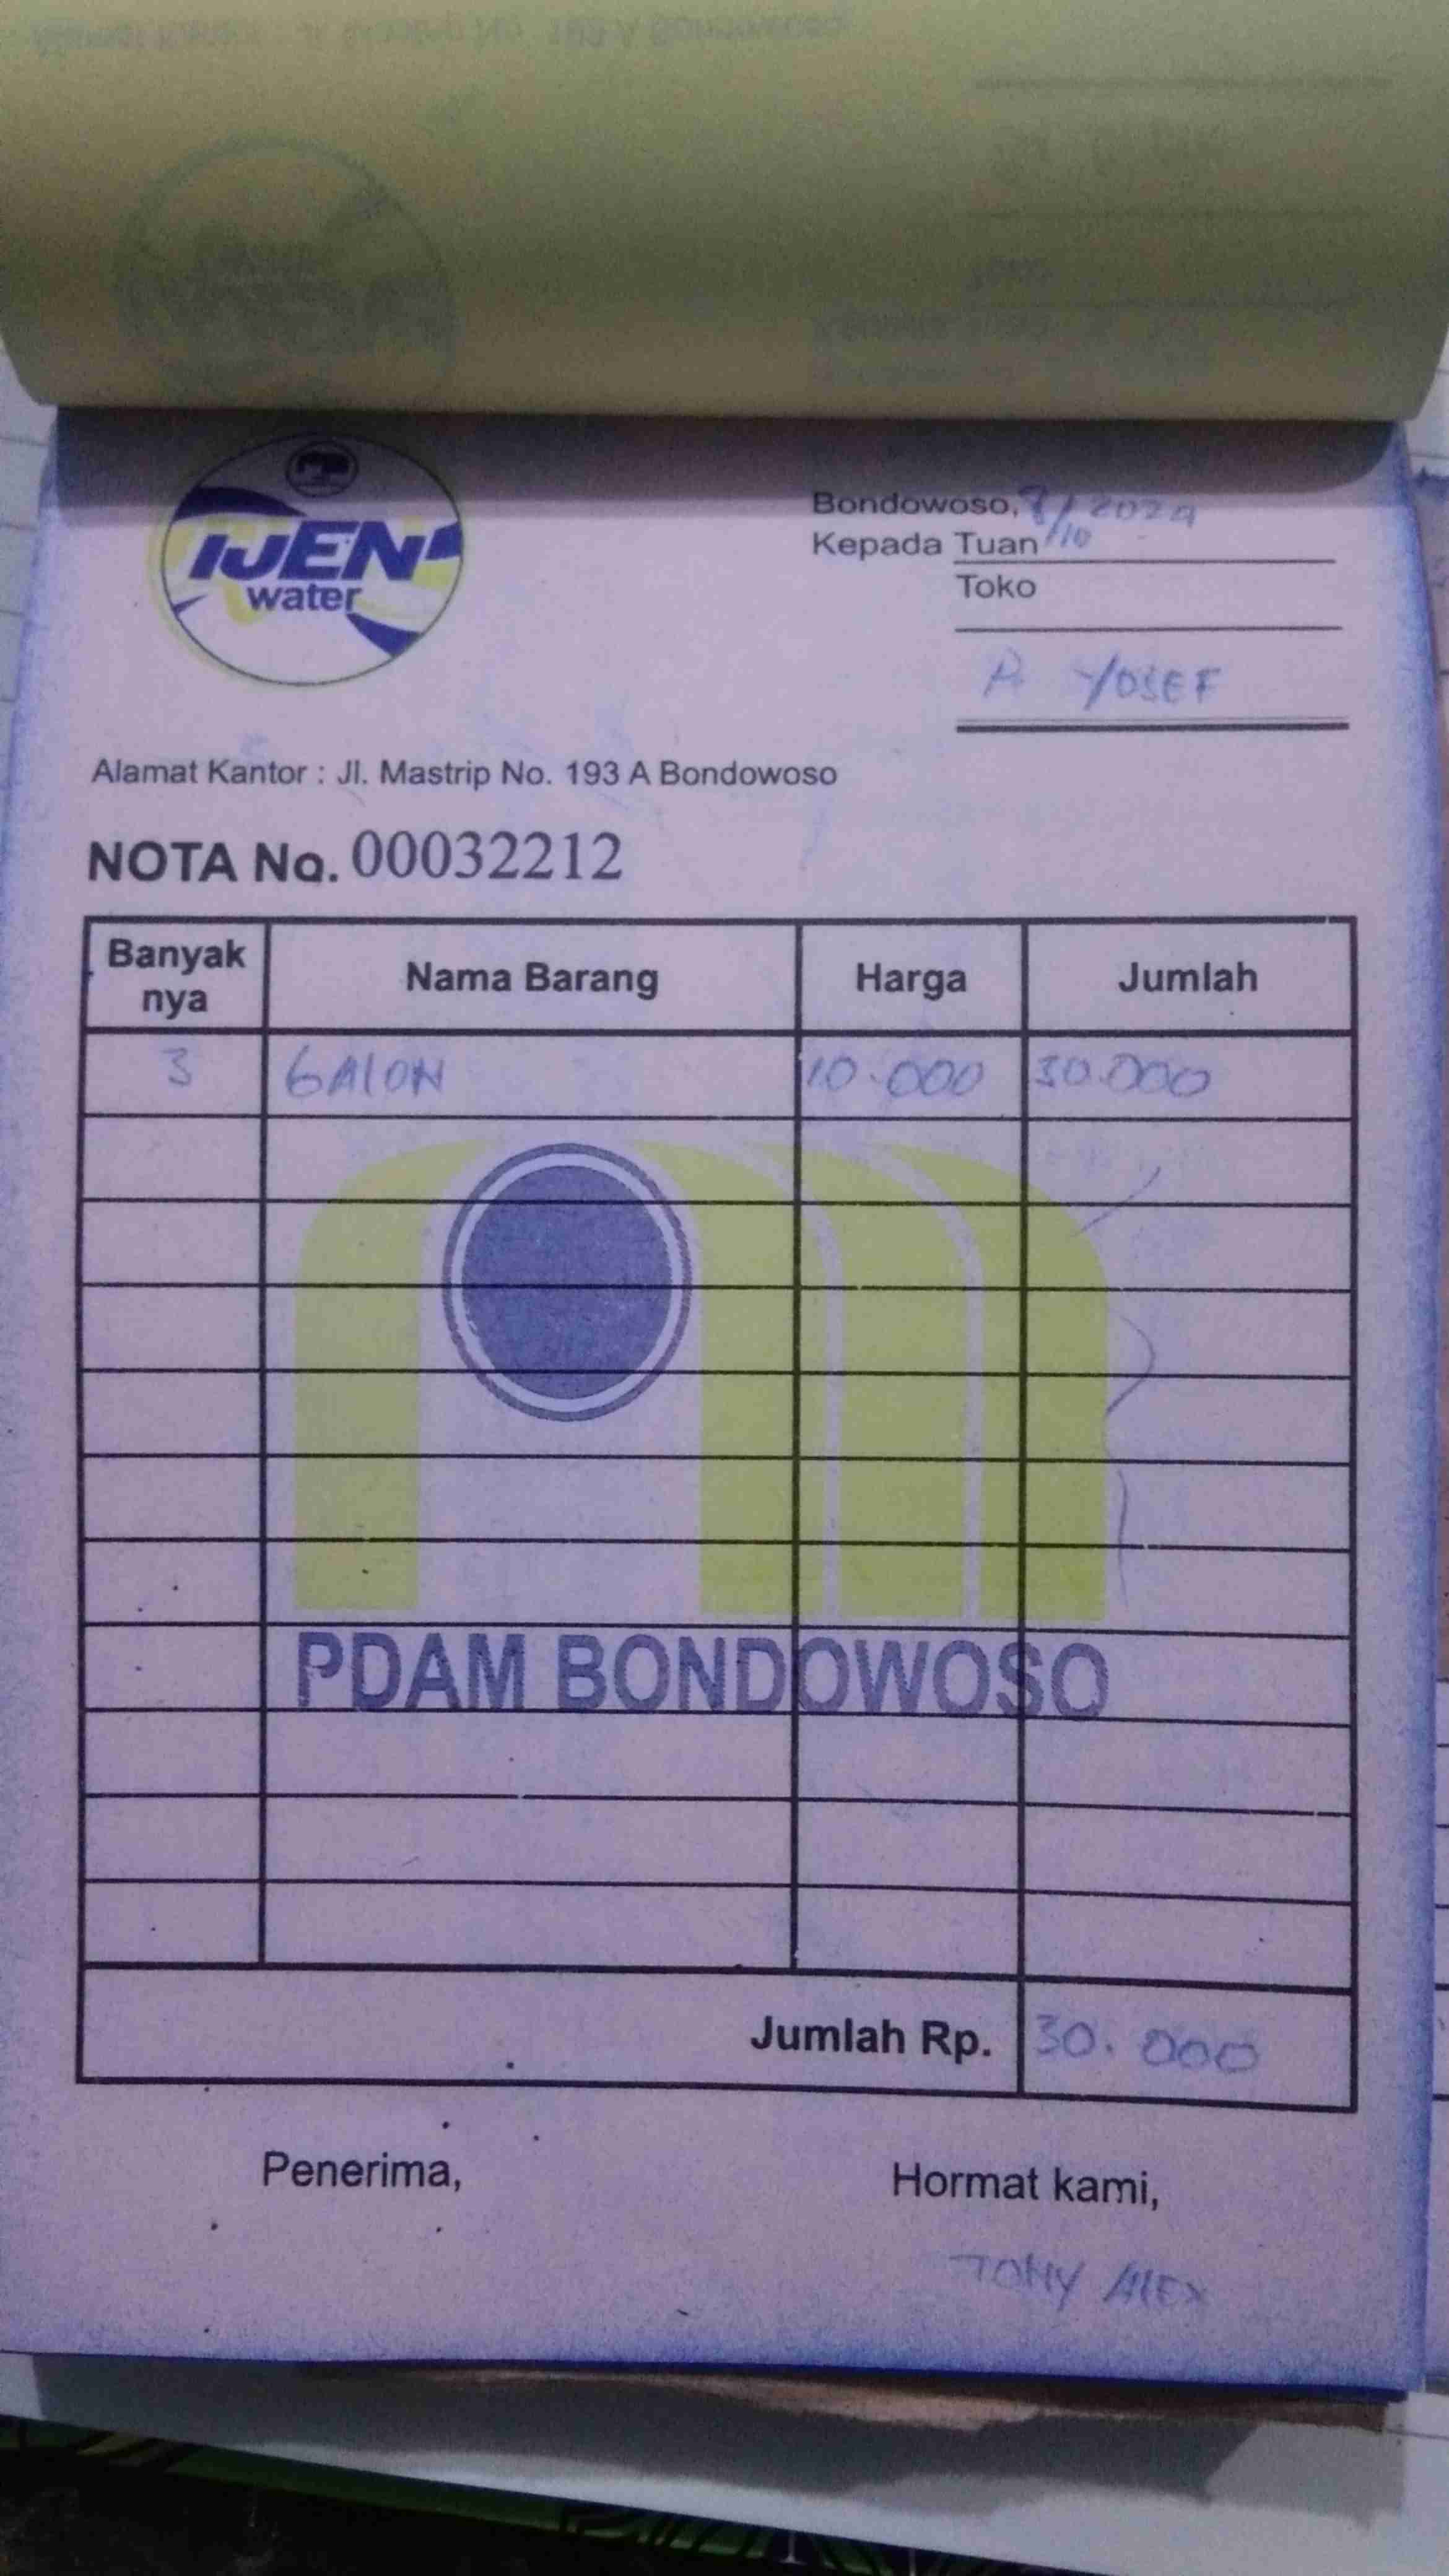 IJEN
water
Bondowoso, 8/10 2024
Kepada Tuan
Toko
P. YOSEF
Alamat Kantor : Jl. Mastrip No. 193 A Bondowoso
NOTA No. 00032212
Banyak nya Nama Barang Harga Jumlah
3 GALON 10.000 30.000
PDAM BONDOWOSO
Jumlah Rp. 30.000
Penerima, Hormat kami,
TONY ALEX